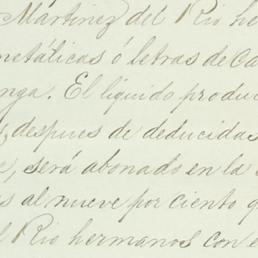 Martinez del Rio he
metálicas ó letras de Ca
nga. El líquido produ
, despues de deducidas
, será abonado en la
s al nueve por ciento q
l Rio hermanos con e